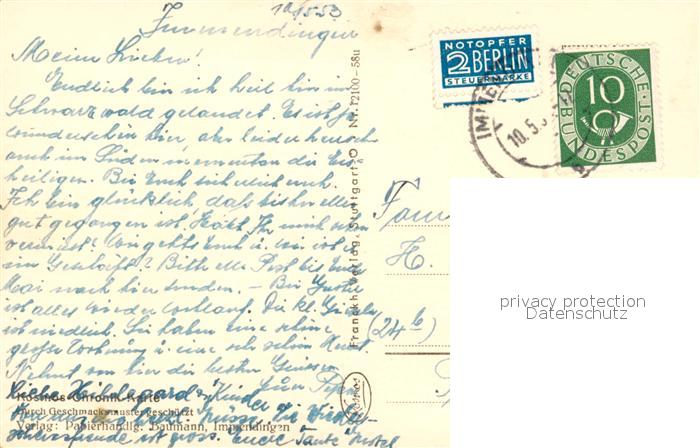 10/5 53
Immendingen
Meine Lieben!
Endlich bin ich heil hier im
Schwarzwald gelandet. Es ist ja
wunderschön hier, aber leider herrschen
auch im Süden momentan die Eis-
heiligen. Bei Euch sicherlich auch.
Ich bin glücklich, daß bisher alles
gut gegangen ist. Habt Ihr mich schon
vermisst? Wie gehts Euch u. wie ist es
im Geschäft? Bitte alle Post bis Ende
Mai nach hier senden. — Bei
ist alles wieder wohlauf. Die kl.
ist niedlich. Sie haben eine schöne
große Wohnung u. eine sehr schöne
Nehmt von hier die besten Grüsse
Euer
Liebe Hildegard u. Kinder
herzl. Grüsse, die Wieder-
sehensfreude ist gross. Eure Tante
Kosmos-Chronik-Karte
Durch Geschmacksmuster geschützt
Verlag: Papierhandlg. Baumann, Immendingen
Franckh-Verlag, Stuttgart-O Nr. 12100-58u
NOTOPFER
2 BERLIN
STEUERMARKE
DEUTSCHE
BUNDESPOST
10
10.5.5
Fam
H.
(24b)
privacy protection
Datenschutz